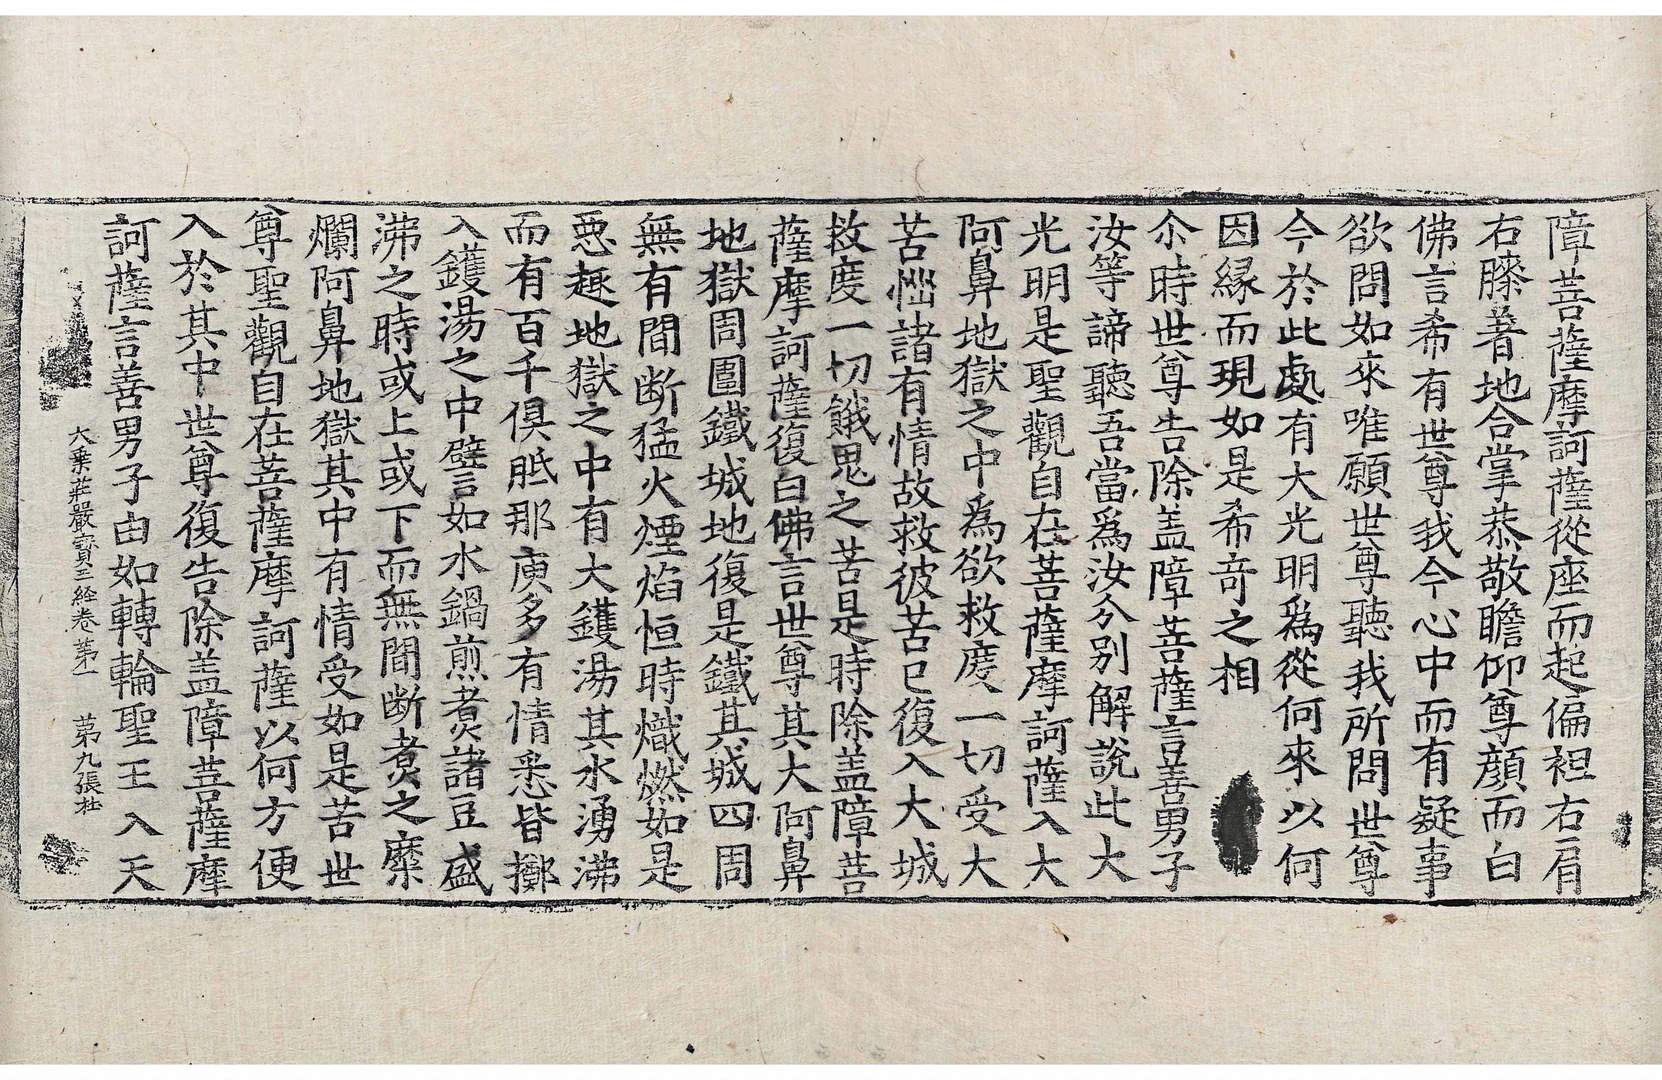 障菩薩摩訶薩從座而起偏袒右肩
右膝著地合掌恭敬瞻仰尊顔而白
佛言希有世尊我今心中而有疑事
欲問如來唯願世尊聽我所問世尊
今於此處有大光明爲從何來以何
因縁而現如是希奇之相
尒時世尊告除盖障菩薩言善男子
汝等諦聽吾當爲汝分別解說此大
光明是聖觀自在菩薩摩訶薩入大
阿鼻地獄之中爲欲救度一切受大
苦惱諸有情故救彼苦已復入大城
救度一切餓鬼之苦是時除盖障菩
薩摩訶薩復白佛言世尊其大阿鼻
地獄周圍鐵城城地復是鐵其城四周
無有間断猛火煙焰恒時熾燃如是
惡趣地獄之中有大鑊湯其水湧沸
而有百千俱胝那庾多有情悉皆擲
入鑊湯之中譬如水鍋煎煮諸豆盛
沸之時或上或下而無間断煮之糜
爛阿鼻地獄其中有情受如是苦世
尊聖觀自在菩薩摩訶薩以何方便
入於其中世尊復告除盖障菩薩摩
訶薩言善男子由如轉輪聖王入天
大乗莊嚴寳王経卷第一 第九張杜